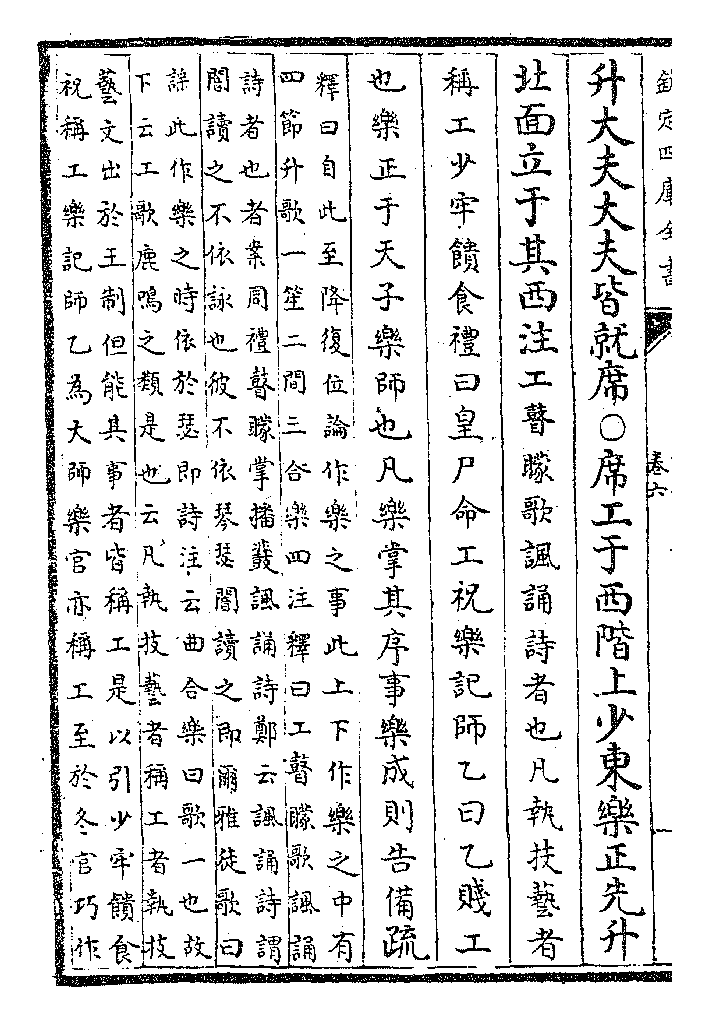 欽定四庫全書
卷六
升大夫大夫皆就席○席工于西階上少東樂正先升
北面立于其西注工瞽矇歌諷誦詩者也凡執技藝者
稱工少牢饋食禮曰皇尸命工祝樂記師乙曰乙賤工
也樂正于天子樂師也凡樂掌其序事樂成則告備疏
釋曰自此至降復位論作樂之事此上下作樂之中有
四節升歌一笙二間三合樂四注釋曰工瞽矇歌諷誦
詩者也者案周禮瞽矇掌播鼗諷誦詩鄭云諷誦詩謂
闇讀之不依詠也彼不依琴瑟闇讀之即爾雅徒歌曰
謡此作樂之時依於瑟即詩注云曲合樂曰歌一也故
下云工歌鹿鳴之類是也云凡執技藝者稱工者執技
藝文出於王制但能其事者皆稱工是以引少牢饋食
祝稱工樂記師乙為大師樂官亦稱工至於冬官巧作